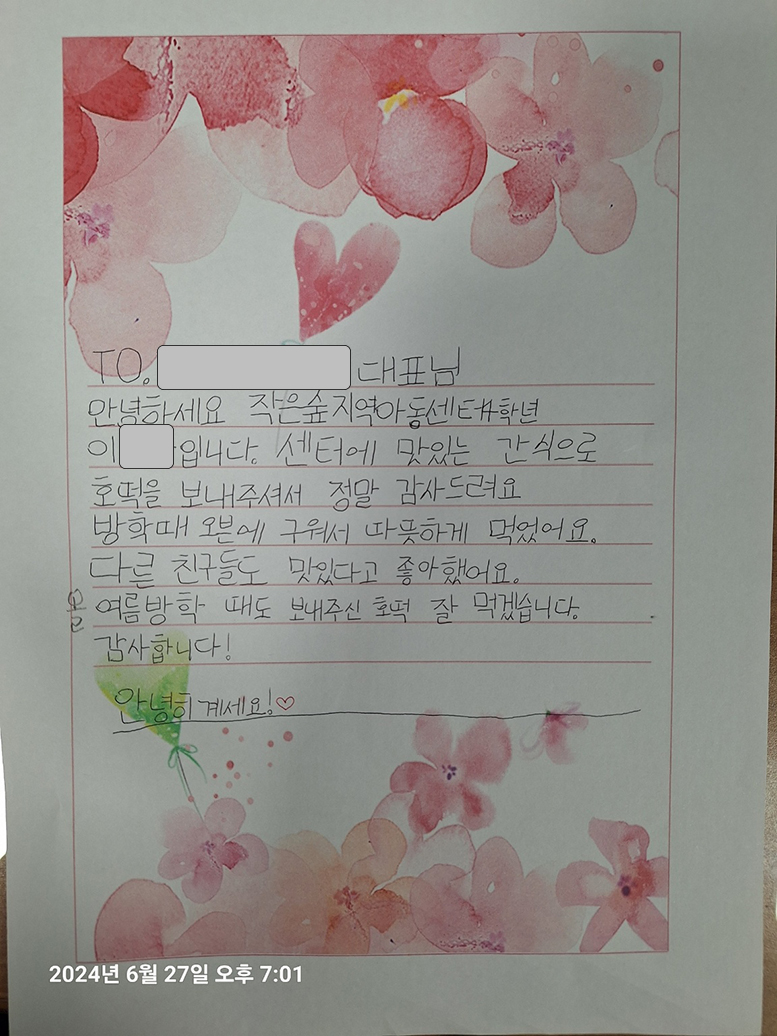 TO. 대표님
안녕하세요 작은숲지역아동센터4학년
이 입니다. 센터에 맛있는 간식으로
호떡을 보내주셔서 정말 감사드려요
방학때 오븐에 구워서 따뜻하게 먹었어요.
다른 친구들도 맛있다고 좋아했어요.
여름방학 때도 보내주신 호떡 잘 먹겠습니다.
감사합니다!
안녕히계세요!♡
2024년 6월 27일 오후 7:01